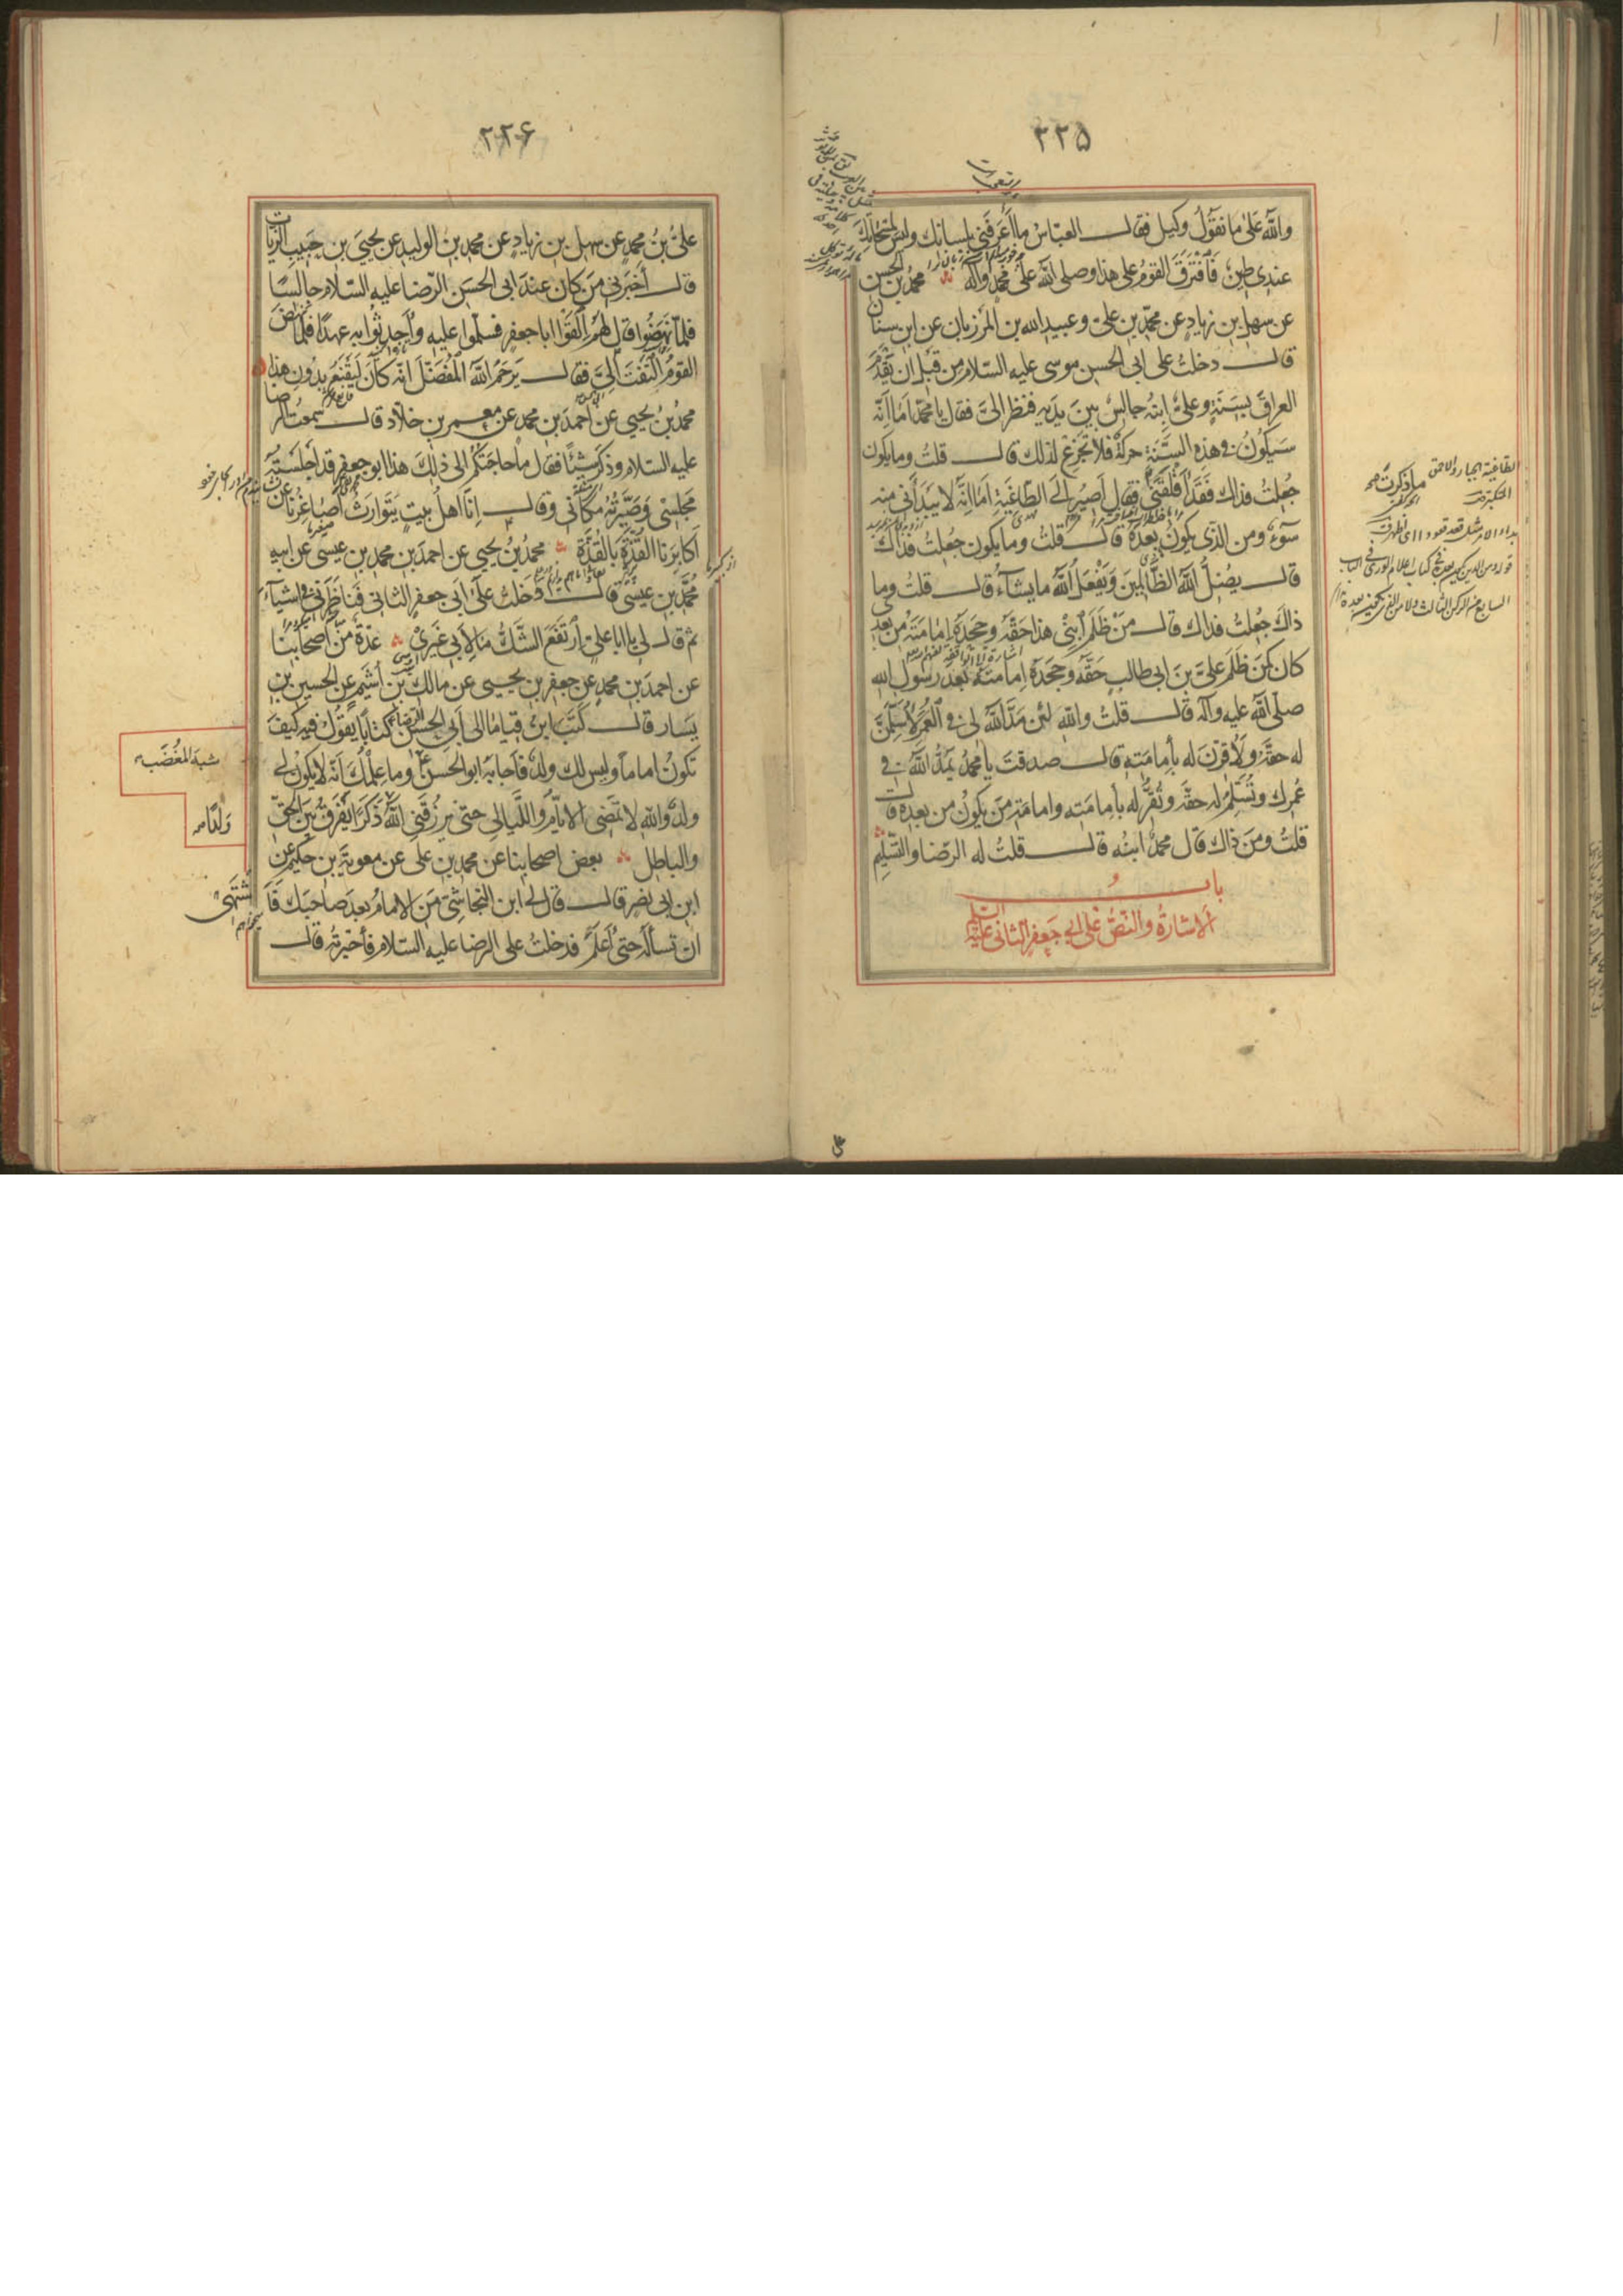 ٣٣۵
والله على ما نقول وكيل فقال العباس ما اعرفني بلسانك وليس لمسحاتك
عندي طين فافترق القوم على هذا وصلى الله على محمد وآله محمد بن الحسن
عن سهل بن زياد عن محمد بن علي وعبيد الله بن المرزبان عن ابن سنان
قال دخلت على ابي الحسن موسى عليه السلام من قبل ان يقدم
العراق بسنة وعلي ابنه جالس بين يديه فنظر الي فقال يا محمد اما انه
سيكون في هذه السنة حركة فلا تجزع لذلك قال قلت وما يكون
جعلت فداك فقد اقلقتني فقال اصير الى الطاغية اما انه لا يبدأني منه
سوء ومن الذي يكون بعده قال قلت وما يكون جعلت فداك
قال يضل الله الظالمين ويفعل الله ما يشاء قال قلت وما
ذاك جعلت فداك قال من ظلم ابني هذا حقه وجحده امامته من بعدي
كان كمن ظلم علي بن ابي طالب حقه وجحده امامته بعد رسول الله
صلى الله عليه وآله قال قلت والله لئن مد الله لي في العمر لاسلمن
له حقه ولاقرن له بأمامته قال صدقت يا محمد يمد الله في
عمرك وتسلم له حقه وتقر له بأمامته وامامة من يكون من بعده قال
قلت ومن ذاك قال محمد ابنه قال قلت له الرضا والتسليم
باب
الاشارة والنص على ابي جعفر الثاني عليه السلم
٢٢۶
علي بن محمد عن سهل بن زياد عن محمد بن الوليد عن يحيى بن حبيب الزيات
قال اخبرني من كان عند ابي الحسن الرضا عليه السلام جالسا
فلما نهضوا قال لهم القوا ابا جعفر فسلموا عليه واحدثوا به عهدا فلما نهض
القوم التفت الي فقال يرحم الله المفضل انه كان ليقنع بدون هذا
محمد بن يحيى عن احمد بن محمد عن معمر بن خلاد قال سمعت الرضا
عليه السلام وذكر شيئا فقال ما حاجتكم الى ذلك هذا ابو جعفر قد اجلسته
مجلسي وصيرته مكاني وقال انا اهل بيت يتوارث اصاغرنا عن
اكابرنا القذة بالقذة محمد بن يحيى عن احمد بن محمد بن عيسى عن ابيه
محمد بن عيسى قال دخلت على ابي جعفر الثاني فناظرني في اشياء
ثم قال لي يا ابا علي ارتفع الشك ما لأبي غيري عدة من اصحابنا
عن احمد بن محمد عن جعفر بن يحيى عن مالك بن اشيم عن الحسين بن
يسار قال كتب ابن قياما الى ابي الحسن الرضا كتابا يقول فيه كيف
تكون اماما وليس لك ولد فاجابه ابو الحسن وما علمك انه لا يكون لي
ولد والله لا تمضي الايام والليالي حتى يرزقني الله ذكرا يفرق بين الحق
والباطل بعض اصحابنا عن محمد بن علي عن معوية بن حكيم عن
ابن ابي نصر قال قال لي ابن النجاشي من الامام بعد صاحبك فا
شتهى
ان تسأله حتى اعلم فدخلت على الرضا عليه السلام فأخبرته قال
شبه المغضب
ولدا